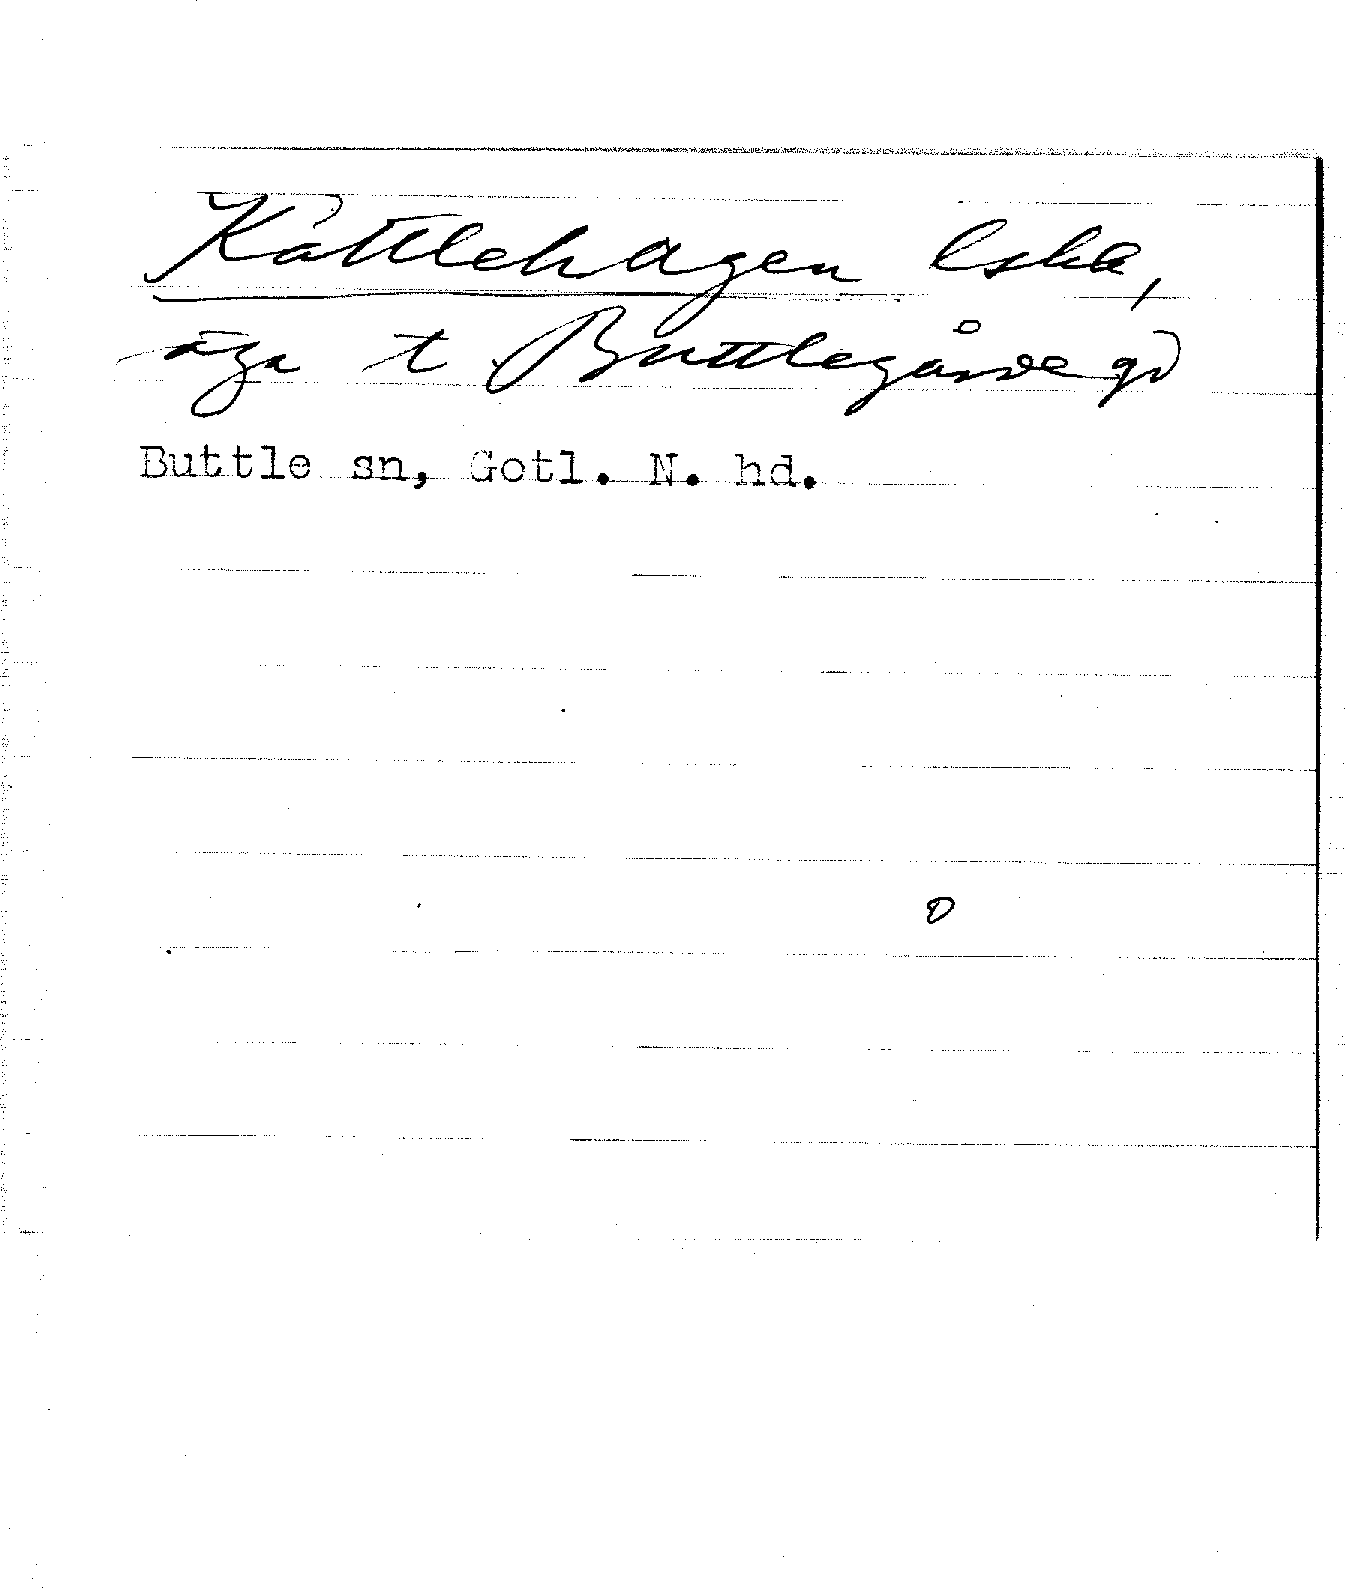 Kattlehagen
äga t Buttlegårde gd
Buttle sn, Gotl. N. hd.